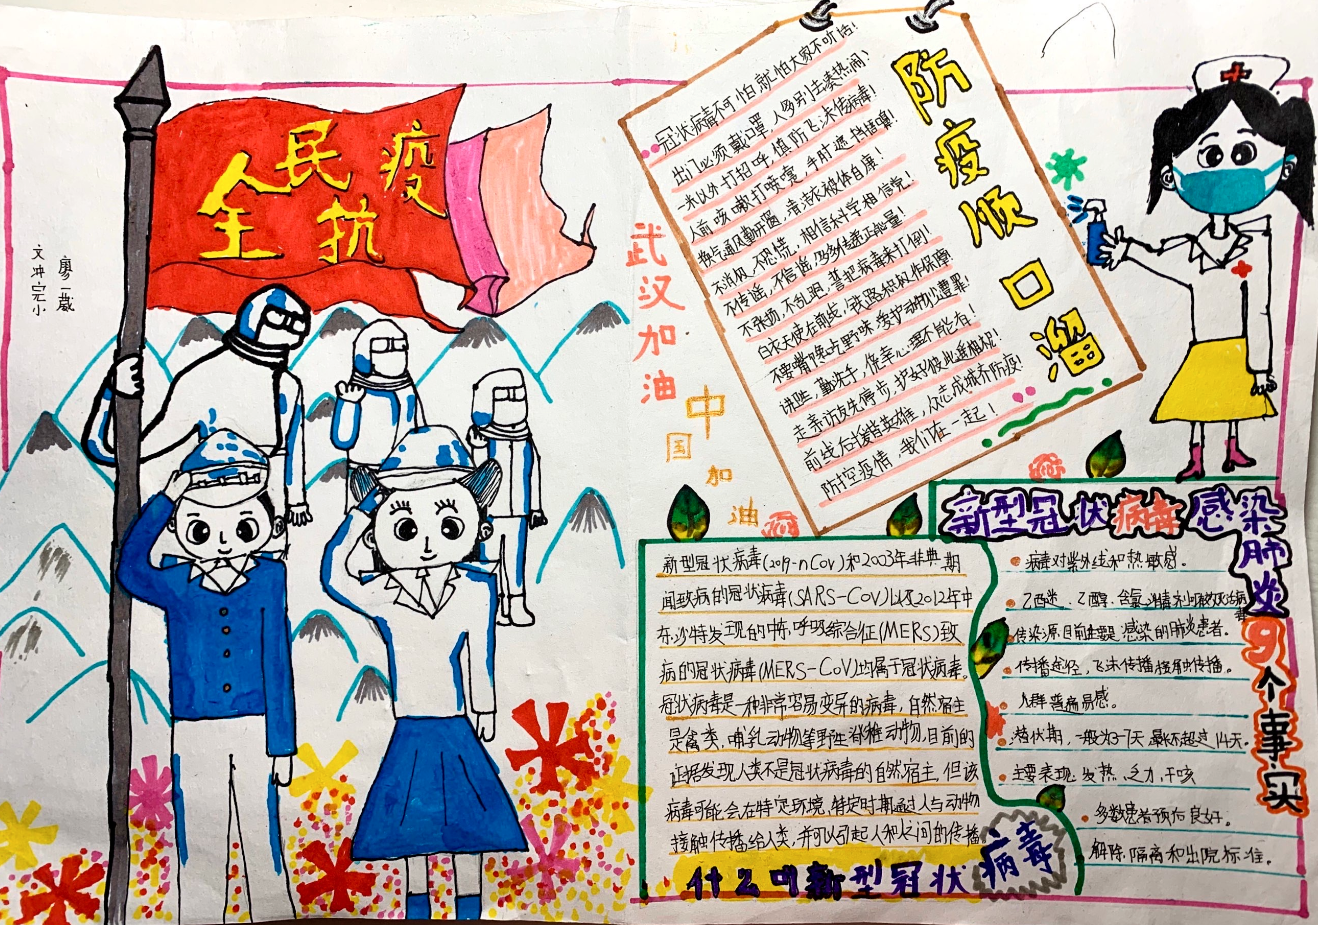 全民抗疫
文冲完小
廖一葳
武汉加油
中国加油
防疫顺口溜
冠状病毒不可怕,就怕大家不听话!
出门必须戴口罩,人多别去凑热闹!
一米以外打招呼,慎防飞沫传病毒!
人前咳嗽打喷嚏,手肘遮挡捂嘴!
换气通风勤开窗,清洁衣被体自康!
不消极,不恐慌,相信科学相信党!
不传谣,不信谣,多多传递正能量!
不张扬,不乱跑,誓把病毒来打倒!
白衣天使在前线,铁路积极作保障
不要嘴馋吃野味,爱护动物少遭罪!
讲卫生,勤洗手,侥幸心理不能有!
走亲访友先停步,护好彼此最相祝!
前线后援皆英雄,众志成城齐防疫!
防控疫情,我们在一起!
新型冠状病毒感染肺炎9个事实
病毒对紫外线和热敏感。
乙醚、乙醇、含氯消毒剂可有效灭活病毒
传染源,目前主要是感染的肺炎患者。
传播途径,飞沫传播接触传播。
人群普遍易感。
潜伏期,一般为3-7天,最长不超过14天。
主要表现:发热,乏力,干咳
多数患者预后良好。
解除隔离和出院标准。
新型冠状病毒(2019-nCov)和2003年非典期
间致病的冠状病毒(SARS-CoV)以及2012年中
东沙特发现的中东呼吸综合征(MERS)致
病的冠状病毒(MERS-CoV)均属于冠状病毒。
冠状病毒是一种非常容易变异的病毒,自然宿主
是禽类,哺乳动物等野生脊椎动物,目前的
证据发现人类不是冠状病毒的自然宿主,但该
病毒可能会在特定环境,特定时期通过人与动物
接触传播给人类,并可以引起人和人间的传播
什么叫新型冠状病毒